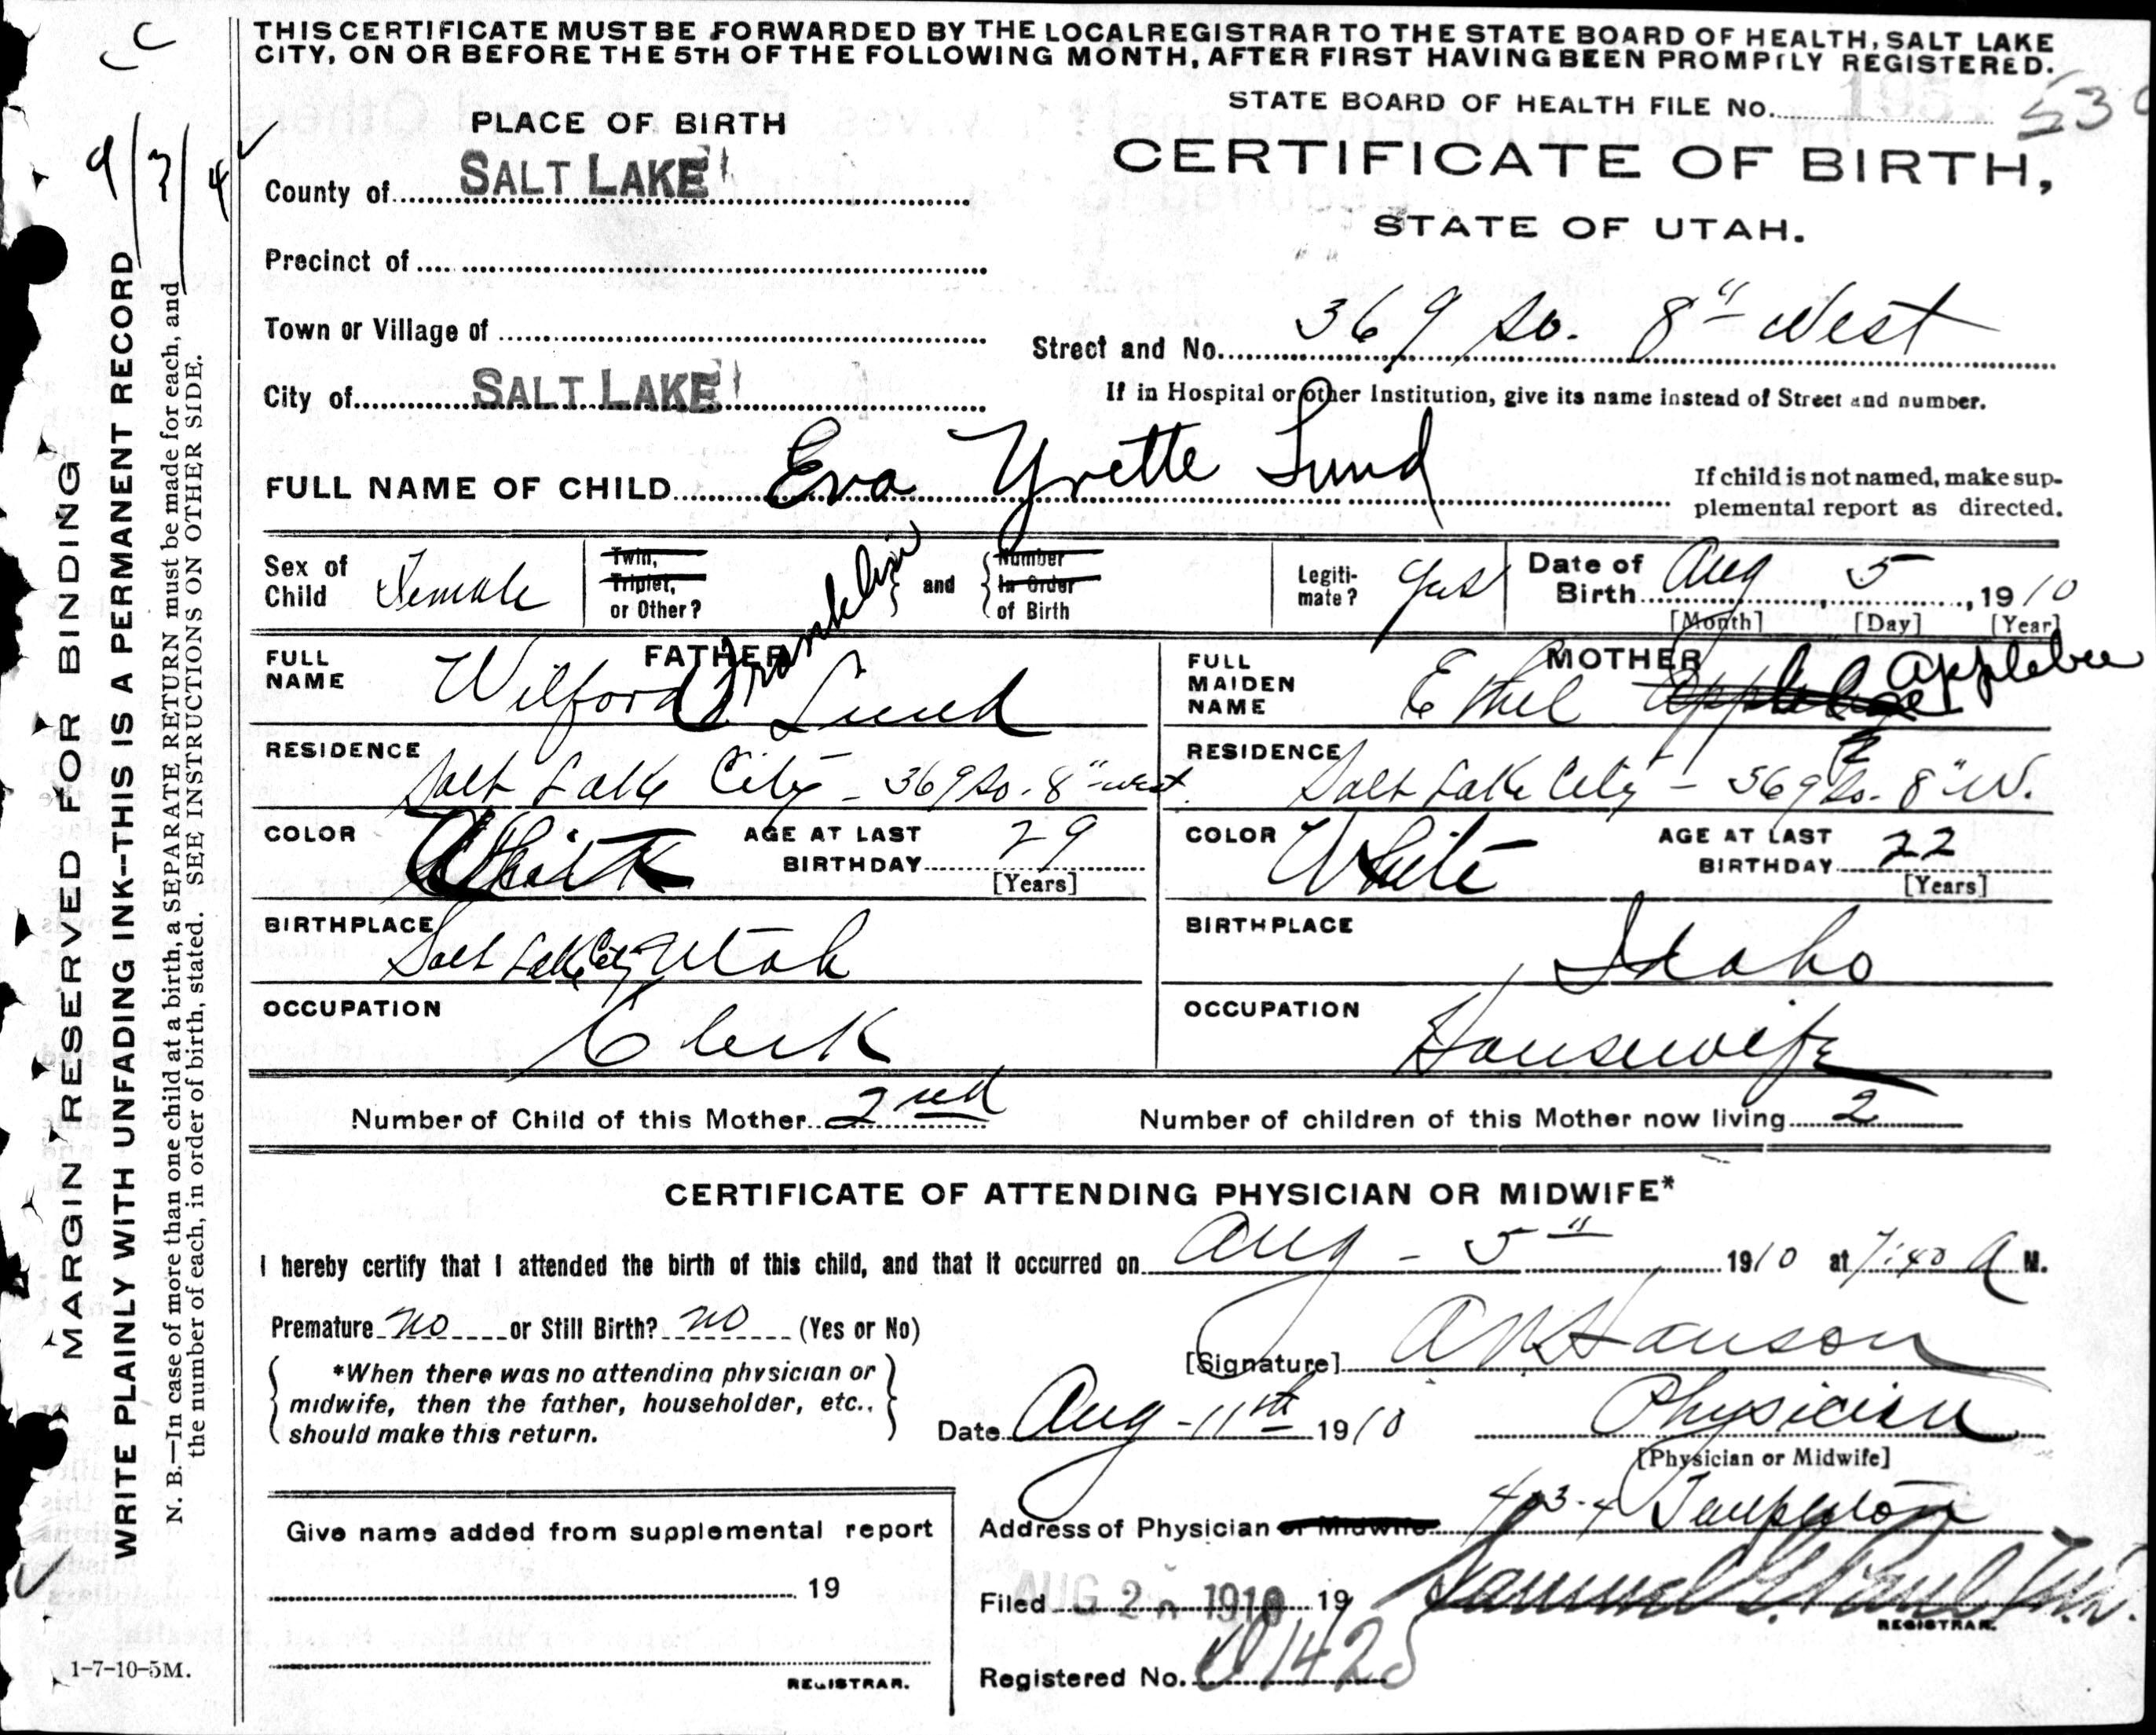 THIS CERTIFICATE MUST BE FORWARDED BY THE LOCAL REGISTRAR TO THE STATE BOARD OF HEALTH, SALT LAKE
CITY, ON OR BEFORE THE 5TH OF THE FOLLOWING MONTH, AFTER FIRST HAVING BEEN PROMPTLY REGISTERED.
STATE BOARD OF HEALTH FILE No.
PLACE OF BIRTH
CERTIFICATE OF BIRTH,
STATE OF UTAH.
County of SALT LAKE
Precinct of
Town or Village of
Street and No. 369 So. 8" West
City of SALT LAKE
If in Hospital or other Institution, give its name instead of Street and number.
FULL NAME OF CHILD Eva Yvette Lund
If child is not named, make sup-
plemental report as directed.
Sex of Child Female
Twin, Triplet, or Other?
and
Number In Order of Birth
Legiti-mate? Yes
Date of Birth Aug 5, 1910
[Month] [Day] [Year]
FATHER
FULL NAME Wilford Franklin Lund
MOTHER
FULL MAIDEN NAME Ethel Applebee
RESIDENCE Salt Lake City - 369 So. 8" West
RESIDENCE Salt Lake City - 369 So. 8" W.
COLOR White
AGE AT LAST BIRTHDAY 29
[Years]
COLOR White
AGE AT LAST BIRTHDAY 22
[Years]
BIRTHPLACE Salt Lake City Utah
BIRTHPLACE Idaho
OCCUPATION Clerk
OCCUPATION Housewife
Number of Child of this Mother 2nd
Number of children of this Mother now living 2
CERTIFICATE OF ATTENDING PHYSICIAN OR MIDWIFE*
I hereby certify that I attended the birth of this child, and that it occurred on Aug - 5" 1910 at 7:40 A M.
Premature no or Still Birth? no (Yes or No)
*When there was no attending physician or
midwife, then the father, householder, etc.,
should make this return.
[Signature] Hanson
Date Aug - 11th 1910
Physician
[Physician or Midwife]
Address of Physician or Midwife 403-4 Templeton
Give name added from supplemental report
19
REGISTRAR.
Filed AUG 1910 19 Samuel G. Paul
REGISTRAR.
Registered No. 1428
1-7-10-5M.
MARGIN RESERVED FOR BINDING
WRITE PLAINLY WITH UNFADING INK--THIS IS A PERMANENT RECORD
N. B.—In case of more than one child at a birth, a SEPARATE RETURN must be made for each, and
the number of each, in order of birth, stated. SEE INSTRUCTIONS ON OTHER SIDE.